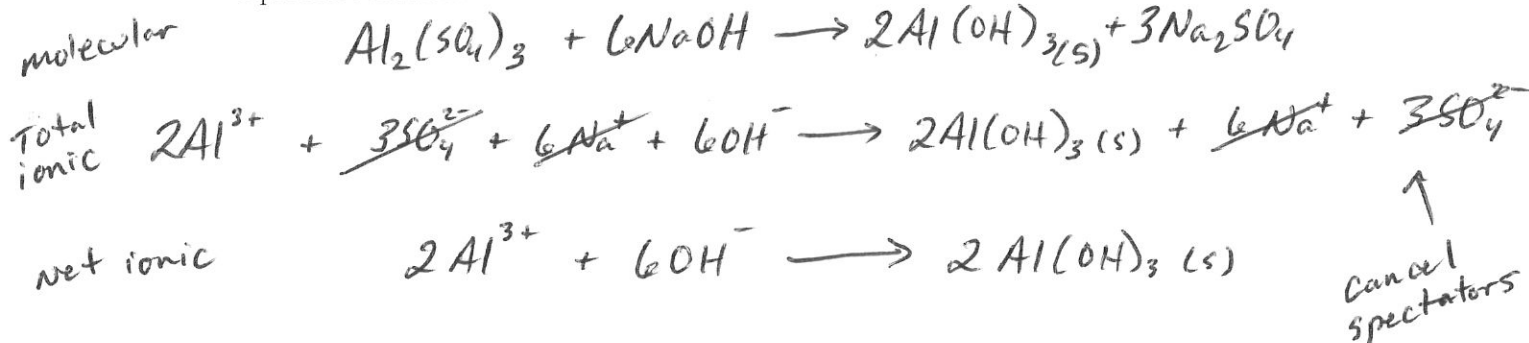 molecular Al₂(SO₄)₃ + 6NaOH → 2Al(OH)₃(s) + 3Na₂SO₄
Total ionic 2Al³⁺ + 3SO₄²⁻ + 6Na⁺ + 6OH⁻ → 2Al(OH)₃(s) + 6Na⁺ + 3SO₄²⁻
Net ionic 2Al³⁺ + 6OH⁻ → 2Al(OH)₃(s)
↑
cancel
spectators